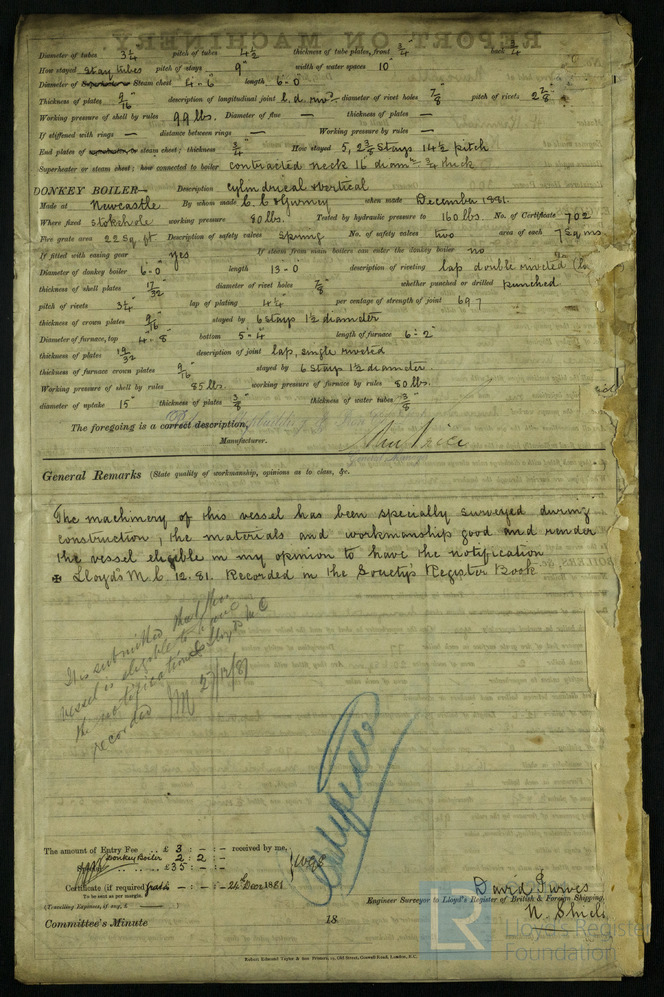 Diameter of tubes 3¼" pitch of tubes 4½ thickness of tube plates, front ¾" back ¾"
How stayed stay tubes pitch of stays 9" width of water spaces 10"
Diameter of Steam chest 4-6" length 6-0"
Thickness of plates 9/16" description of longitudinal joint l. d. riv diameter of rivet holes 7/8" pitch of rivets 2 7/8"
Working pressure of shell by rules 99 lbs. Diameter of flue — thickness of plates —
If stiffened with rings — distance between rings — Working pressure by rules —
End plates of steam chest; thickness ¾" How stayed 5, 2¾ Stays 14½ pitch
Superheater or steam chest; how connected to boiler contracted neck 16 diamr ¾ thick
DONKEY BOILER— Description cylindrical vertical
Made at Newcastle By whom made when made December 1881.
Where fixed stokehole working pressure 80 lbs. Tested by hydraulic pressure to 160 lbs. No. of Certificate 702
Fire grate area 22 Sq. ft Description of safety valves Spring No. of safety valves two area of each 7 Sq. ins
If fitted with easing gear yes If steam from main boilers can enter the donkey boiler no
Diameter of donkey boiler 6-0" length 13-0" description of riveting lap double riveted
thickness of shell plates 17/32 diameter of rivet holes 7/8" whether punched or drilled punched
pitch of rivets 3¼" lap of plating 4¼" per centage of strength of joint 69.7
thickness of crown plates 9/16" stayed by 6 Stays 1½ diameter
Diameter of furnace, top 4-8" bottom 5-4" length of furnace 6-2"
thickness of plates 19/32 description of joint lap, single riveted
thickness of furnace crown plates 9/16" stayed by 6 Stays 1½ diameter
Working pressure of shell by rules 85 lbs. working pressure of furnace by rules 80 lbs.
diameter of uptake 15" thickness of plates 3/8" thickness of water tubes 3/8"
The foregoing is a correct description,
Manufacturer. John Price
General Manager
General Remarks (State quality of workmanship, opinions as to class, &c.
The machinery of this vessel has been specially surveyed during
construction, the materials and workmanship good and render
the vessel eligible in my opinion to have the notification
✠ Lloyd's M.C. 12.81. Recorded in the Society's Register Book
It is submitted that this
vessel is eligible to have
the notification Lloyd's M C
recorded 27/12/81
The amount of Entry Fee .. £ 3 : - : - received by me,
Donkey Boiler 2 : 2 : -
.. £ 35 : - : -
Certificate (if required) gratis - : - : - 24th Decr 1881
To be sent as per margin.
(Travelling Expenses, if any, £ )
David Purves
Engineer Surveyor to Lloyd's Register of British & Foreign Shipping.
N. Shields
Committee's Minute 18
Robert Edmund Taylor & Son Printers, 19, Old Street, Goswell Road, London, E.C.
LR
Lloyd's Register
Foundation